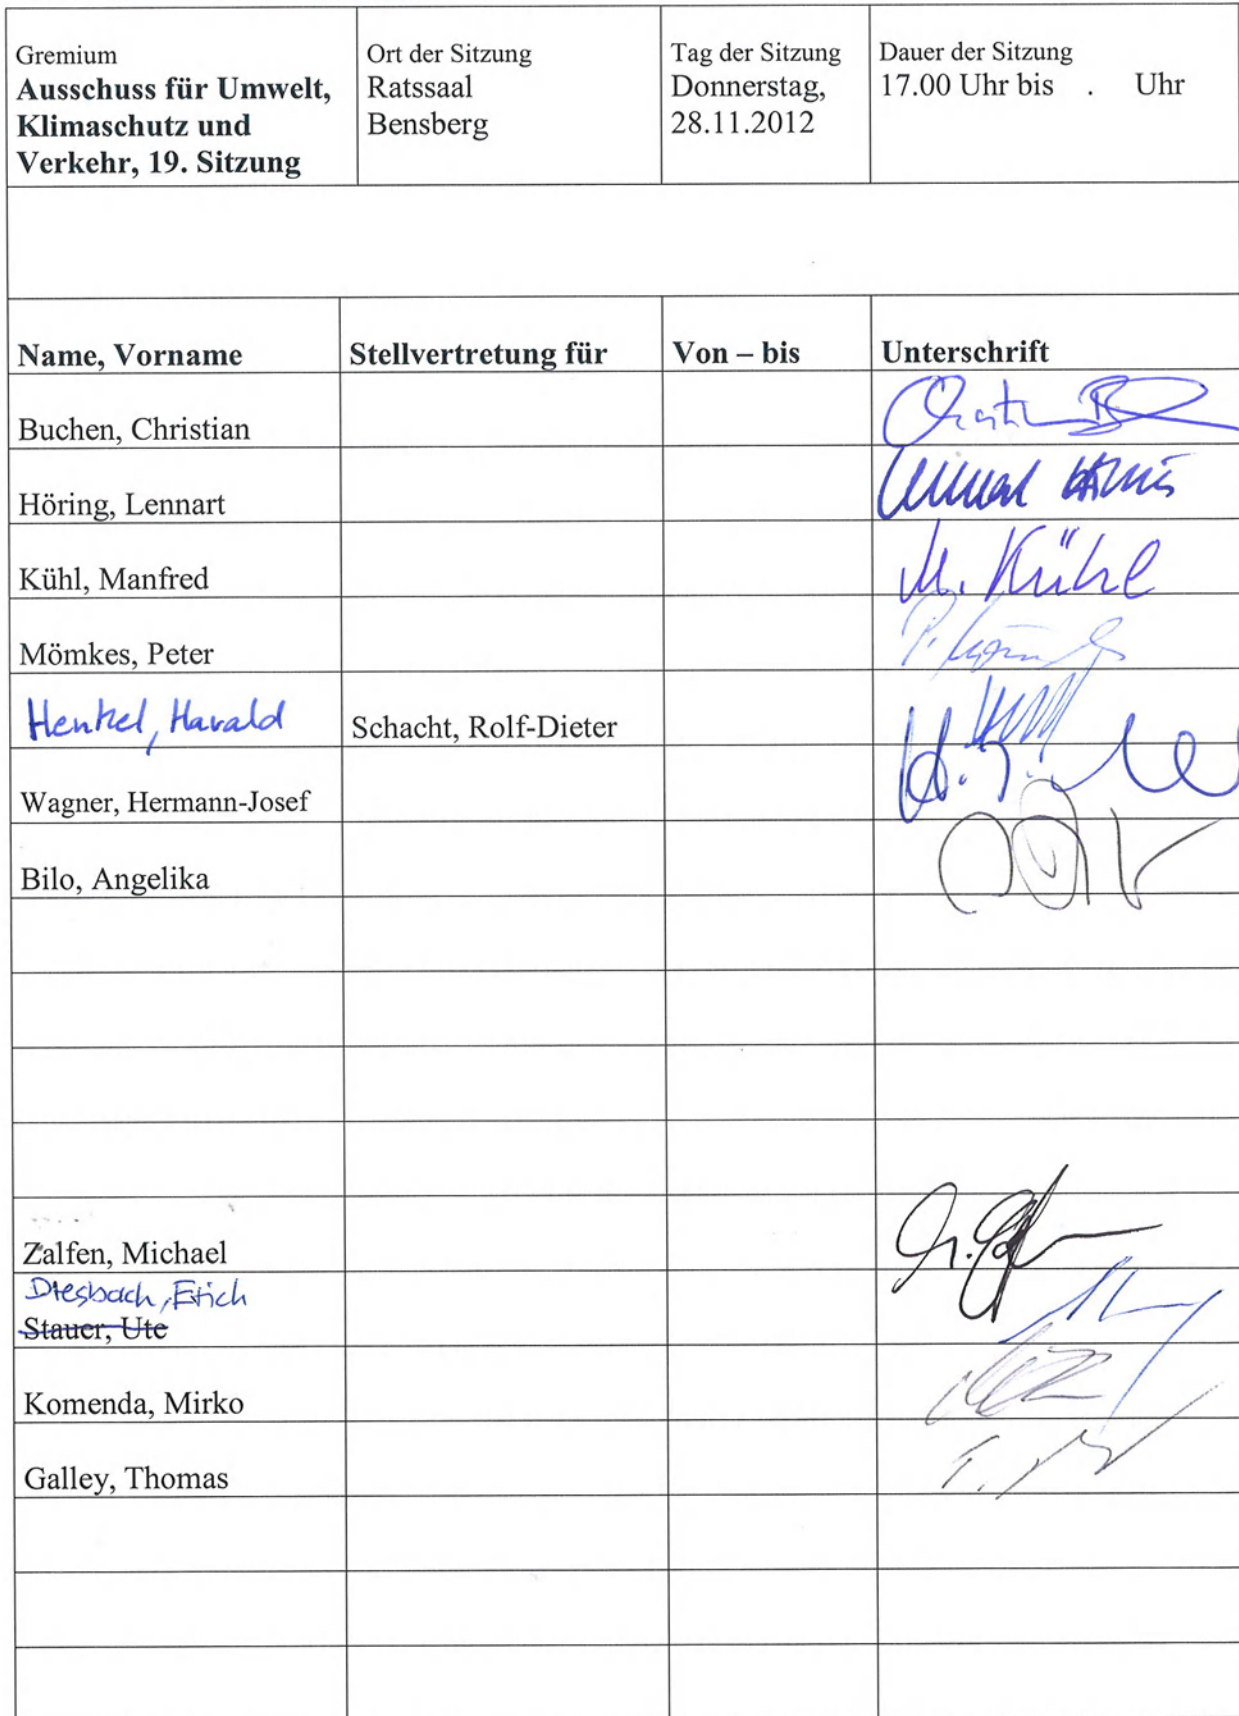 Gremium
Ausschuss für Umwelt,
Klimaschutz und
Verkehr, 19. Sitzung
Ort der Sitzung
Ratssaal
Bensberg
Tag der Sitzung
Donnerstag,
28.11.2012
Dauer der Sitzung
17.00 Uhr bis . Uhr
Name, Vorname Stellvertretung für Von – bis Unterschrift
Buchen, Christian
Höring, Lennart
Kühl, Manfred M. Kühl
Mömkes, Peter
Henkel, Harald Schacht, Rolf-Dieter
Wagner, Hermann-Josef
Bilo, Angelika
Zalfen, Michael
Dresbach, Erich
Stauer, Ute
Komenda, Mirko
Galley, Thomas